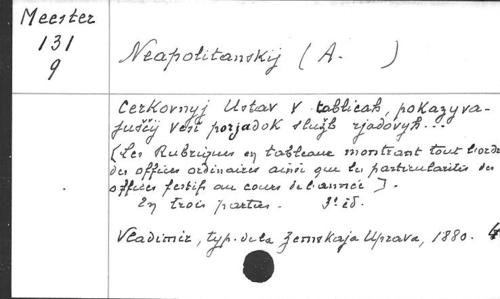 Meester
131
9
Neapolitanskij (A. )
Cerkovnyj Ustav v tablicah, pokazyva-
juščij ves' porjadok služb rjadovyh...
[Les Rubriques en tableaux montrant tout l'ordre
des offices ordinaires ainsi que les particularités des
offices festifs au cours de l'année].
En trois parties. 3e éd.
Vladimir, typ. de la Zemskaja Uprava, 1880. 4